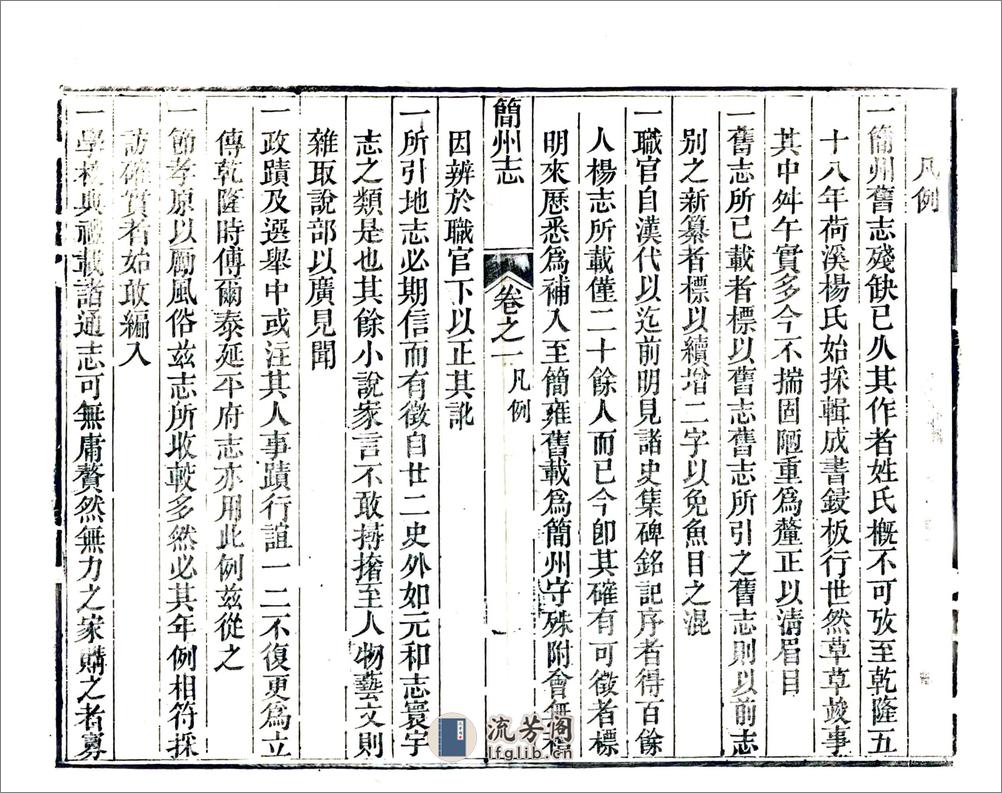 凡例
一簡州舊志殘缺已久其作者姓氏概不可攷至乾隆五
十八年荷溪楊氏始採輯成書鋟板行世然草草竣事
其中舛午實多今不揣固陋重爲釐正以清眉目
一舊志所已載者標以舊志舊志所引之舊志則以前志
別之新纂者標以續增二字以免魚目之混
一職官自漢代以迄前明見諸史集碑銘記序者得百餘
人楊志所載僅二十餘人而已今卽其確有可徵者標
明來歷悉爲補入至簡雍舊載爲簡州守殊附會無
簡州志
卷之一 凡例
因辨於職官下以正其訛
一所引地志必期信而有徵自廿二史外如元和志寰宇
志之類是也其餘小說家言不敢撏撦至人物藝文則
雜取說部以廣見聞
一政蹟及選舉中或注其人事蹟行誼一二不復更爲立
傳乾隆時傅爾泰延平府志亦用此例茲從之
一節孝原以勵風俗茲志所收較多然必其年例相符採
訪確實者始敢編入
一學校典禮載諸通志可無庸贅然無力之家購之者寡
流芳阁
lfglib.com